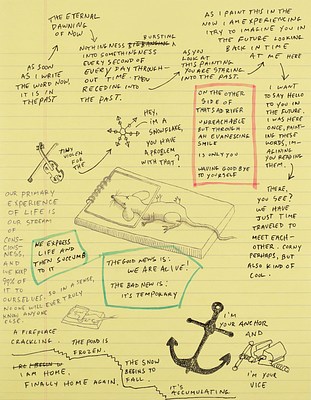 THE ETERNAL
DAWNING
OF NOW
AS SOON
AS I WRITE
THE WORD NOW,
IT IS IN
THE PAST
BURSTING
NOTHINGNESS
INTO SOMETHINGNESS
EVERY SECOND OF
EVERY DAY THROUGH-
OUT TIME. THEN
RECEDING INTO
THE PAST.
AS YOU
LOOK AT
THIS PAINTING
YOU ARE STARING
INTO THE PAST.
AS I PAINT THIS IN THE
NOW I AM EXPERIENCING
I TRY TO IMAGINE YOU IN
THE FUTURE LOOKING
BACK IN TIME
AT ME HERE
I WANT
TO SAY HELLO
TO YOU IN
THE FUTURE.
I WAS HERE
ONCE, PAINT-
ING THESE
WORDS, IM-
AGINING YOU
READING
THEM.
THERE,
YOU SEE?
WE HAVE
JUST TIME
TRAVELED TO
MEET EACH-
OTHER. CORNY
PERHAPS, BUT
ALSO KIND OF
COOL.
ON THE OTHER
SIDE OF
THAT SAD RIVER
UNREACHABLE
BUT THROUGH
AN EVANESCING
SMILE
IS ONLY YOU
WAVING GOOD BYE
TO YOURSELF
TINY
VIOLIN
FOR THE
HEY,
I'M A
SNOWFLAKE,
YOU HAVE
A PROBLEM
WITH THAT?
OUR PRIMARY
EXPERIENCE
OF LIFE IS
OUR STREAM
OF
CONS-
CIOUS-
NESS,
AND
WE KEEP
99% OF
IT TO
OURSELVES. SO, IN A SENSE,
NO ONE WILL EVER TRULY
KNOW ANYONE
ELSE.
WE EXPRESS
LIFE AND
THEN SUCCUMB
TO IT
THE GOOD NEWS IS:
WE ARE ALIVE!
THE BAD NEWS IS:
IT'S TEMPORARY
A FIREPLACE
CRACKLING.
THE POND IS
FROZEN.
I AM HOME.
FINALLY HOME AGAIN.
THE SNOW
BEGINS TO
FALL.
IT'S
ACCUMULATING.
I'M
YOUR ANCHOR
AND
I'M YOUR
VICE